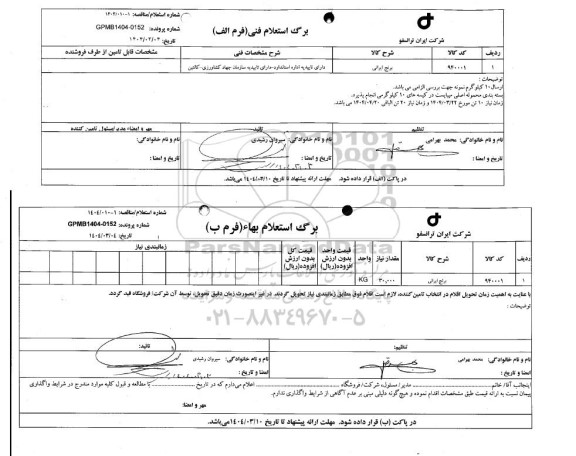 شماره استعلام/مناقصه: ۱۴۰۴/۰۱۰۰۱
برگ استعلام فنی(فرم الف)
شماره پرونده: GPMB1404-0152
تاریخ: ۱۴۰۴/۰۳/۰۴
شرکت ایران ترانسفو
ردیف کد کالا شرح کالا شرح مشخصات فنی مشخصات قابل تامین از طرف فروشنده
۱ ۹۴۰۰۰۱ برنج ایرانی دارای تاییدیه اداره استاندارد-دارای تاییدیه سازمان جهاد کشاورزی-
توضیحات :
ارسال۱۰ کیلوگرم نمونه جهت بررسی الزامی می باشد.
بسته بندی محموله اصلی میبایست در کیسه های ۱۰ کیلوگرمی انجام پذیرد.
زمان نیاز ۱۰ تن مورخ ۱۴۰۴/۰۳/۲۲ و زمان نیاز ۲۰ تن الباقی ۱۴۰۴/۰۴/۲۰ می باشد.
تنظیم تائید: مهر و امضاء مدیر/مسئول تامین کننده
نام و نام خانوادگی: محمد بهرامی نام و نام خانوادگی: سیروان رشیدی نام و نام خانوادگی:
تاریخ و امضا : تاریخ و امضا : تاریخ و امضا :
در پاکت (الف) قرار داده شود. مهلت ارائه پیشنهاد تا تاریخ ۱۴۰۴/۰۳/۱۰ می‌باشد.
شماره استعلام/مناقصه: ۱۴۰۴/۰۱۰۰۱
برگ استعلام بهاء(فرم ب)
شماره پرونده: GPMB1404-0152
تاریخ: ۱۴۰۴/۰۳/۰۴
شرکت ایران ترانسفو
ردیف کد کالا شرح کالا مقدار نیاز واحد قیمت واحد بدون ارزش افزوده(ریال) قیمت کل بدون ارزش افزوده(ریال) زمانبندی نیاز
۱ ۹۴۰۰۰۱ برنج ایرانی ۳۰,۰۰۰ KG
ParsNamadData
با عنایت به اهمیت زمان تحویل اقلام در انتخاب تامین کننده، لازم است اقلام فوق مطابق زمانبندی نیاز تحویل گردند. در غیر اینصورت زمان دقیق تحویل، توسط آن شرکت/ فروشگاه قید گردد.
توضیحات :
۰۲۱-۸۸۳۴۹۶۷۰-۵
تنظیم: تائید:
نام و نام خانوادگی: محمد بهرامی نام و نام خانوادگی: سیروان رشیدی
امضا و تاریخ : امضا و تاریخ :
اینجانب آقا/ خانم مدیر/ مسئول، شرکت/ فروشگاه اعلام می‌دارم که در تاریخ با مطالعه و قبول کلیه موارد مندرج در شرایط واگذاری
پیمان نسبت به ارائه قیمت طبق مشخصات اقدام نموده و هیچ‌گونه دلیلی مبنی بر عدم آگاهی از شرایط واگذاری ندارم.
مهر و امضاء
در پاکت (ب) قرار داده شود. مهلت ارائه پیشنهاد تا تاریخ ۱۴۰۴/۰۳/۱۰ می‌باشد.